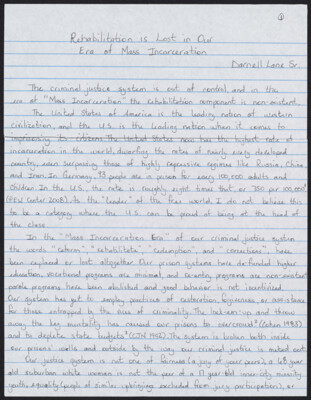 ①
Rehabilitation is Lost in Our
Era of Mass Incarceration
Darnell Lane Sr.
The criminal justice system is out of control, and in the
era of "Mass Incarceration" the rehabilitation component is non-existent.
The United States of America is the leading nation of western
civilization, and the U.S. is the leading nation when it comes to
imprisoning its citizens. The United States now has the highest rate of
incarceration in the world, dwarfing the rates of nearly every developed
country, even surpassing those of highly repressive regimes like Russia, China
and Iran. In Germany, 93 people are in prison for every 100,000 adults and
children. In the U.S. the rate is roughly eight times that, or 750 per 100,000"
(PEW Center 2008). As the "leader" of the free world, I do not believe this
to be a category where the U.S. can be proud of being at the head of
the class.
In the "Mass Incarceration Era" of our criminal justice system
the words "reform", "rehabilitate", "redemption", and "corrections", have
been replaced or lost altogether. Our prison systems have de-funded higher
education, vocational programs are minimal, and re-entry programs are non-existent
parole programs have been abolished and good behavior is not incentivized.
Our system has yet to employ practices of restoration, forgiveness, or assistance
for those entrapped by the vices of criminality. The lock-em-up and throw
away the key mentality has caused our prisons to overcrowd" (Cohen 1983)
and to deplete state budgets" (1992). The system is broken both inside
our prisons' walls and outside by the way our criminal justice is meted out.
Our justice system is not one of fairness (a jury of your peers), a 68 year
old suburban white woman is not the peer of a 17 year old inner-city minority
youth, equality (people of similar upbringings excluded from jury participation), or